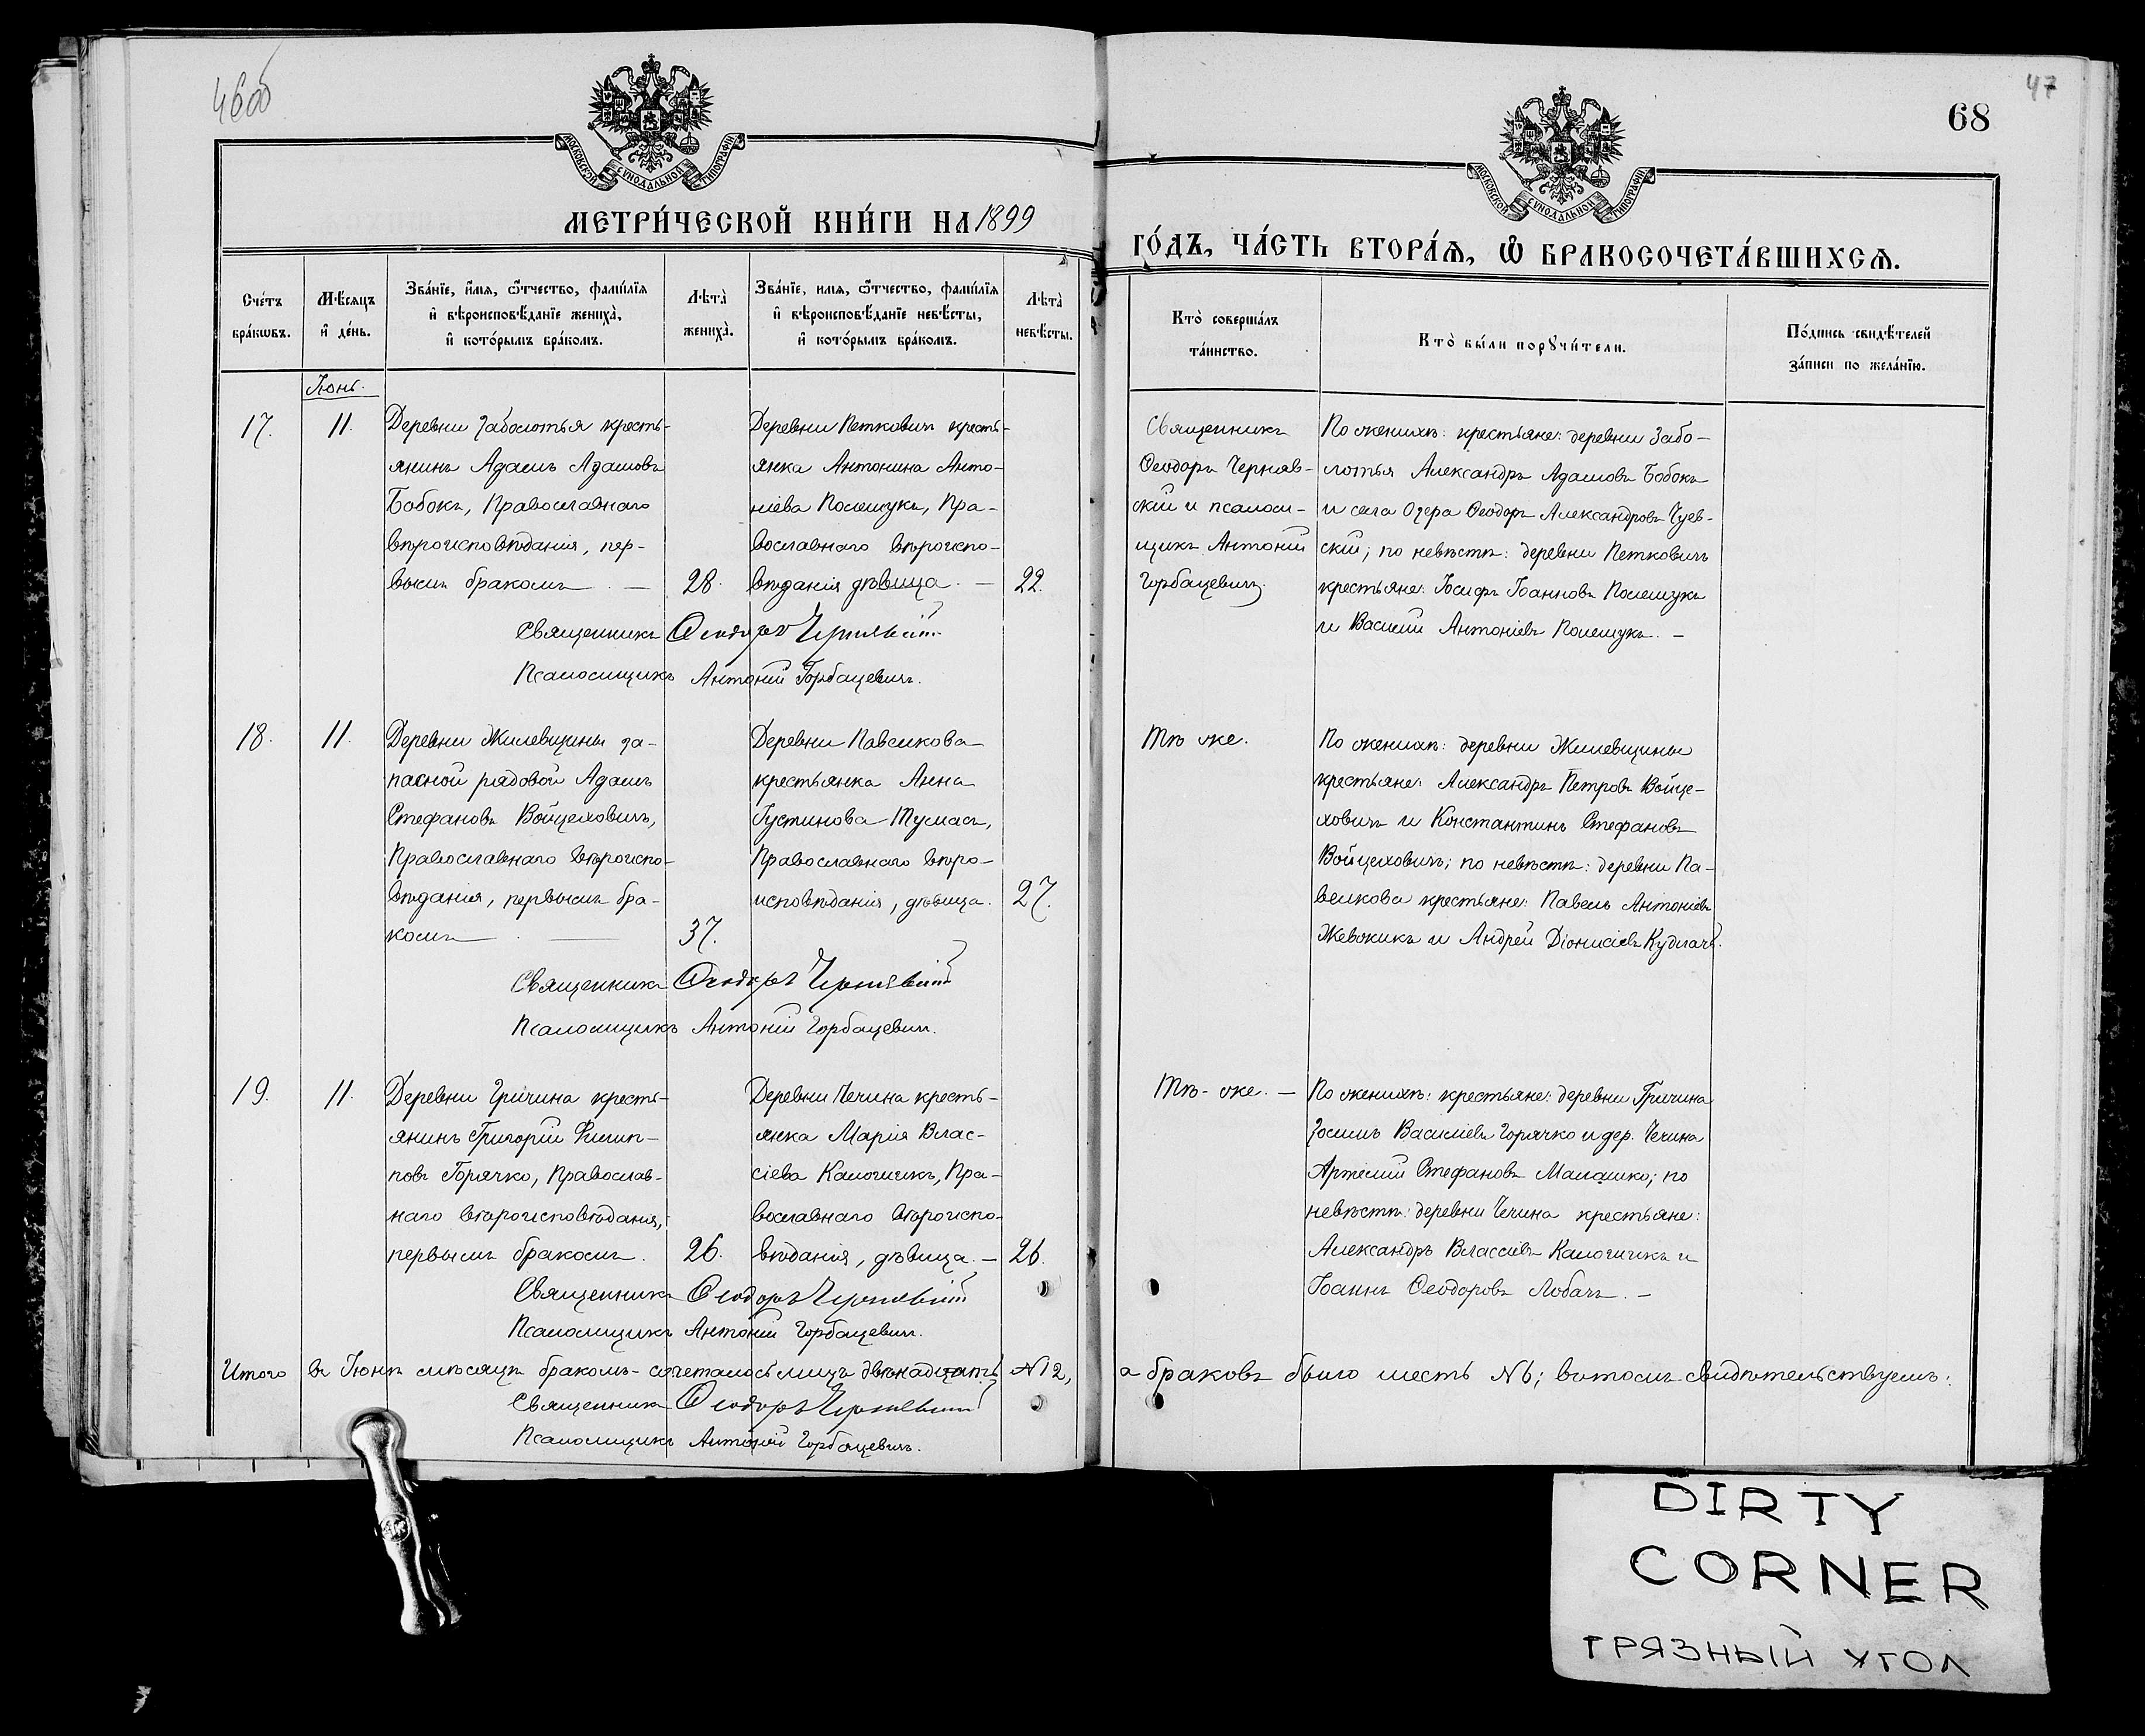 46об
47
68
МОСКОВСКОЙ СѴНОДАЛЬНОЙ ТИПОГРАФІИ
МОСКОВСКОЙ СѴНОДАЛЬНОЙ ТИПОГРАФІИ
МЕТРИ́ЧЕСКОЙ КНИ́ГИ НА 1899
ГО́ДЪ, ЧА́СТЬ ВТОРА́Я, Ѽ БРАКОСОЧЕТА́ВШИХСЯ.
Сче́тъ
бра́кѡвъ.
Мѣ́сяцъ
и҆ де́нь.
Зва́нїе, и҆́мя, ѻ҆́тчество, фами́лїя
и҆ вѣроисповѣ́данїе жениха̀,
и҆ кото́рымъ бра́комъ.
Лѣта̀
жениха̀.
Зва́нїе, и҆мя, ѻ҆́тчество, фами́лїя
и҆ вѣроисповѣ́данїе невѣ́сты,
и҆ кото́рымъ бра́комъ.
Лѣта̀
невѣ́сты.
Кто̀ соверша́лъ
та́инство.
Кто̀ бы́ли порꙋчи́тели.
По́дпись свидѣ́телей
за́писи по жела́нїю.
Іюнь.
17.
11.
Деревни Заболотья кресть-
янинъ Адамъ Адамовъ
Бобокъ, Православнаго
вѣроисповѣданія, пер-
вымъ бракомъ —
28.
Деревни Петковичъ кресть-
янка Антонина Анто-
ніева Полещукъ, Пра-
вославнаго вѣроиспо-
вѣданія дѣвица. —
22.
Священникъ
Ѳеодоръ Черняв-
скій и псалом-
щикъ Антоній
Горбацевичъ.
По женихѣ: крестьяне: деревни Забо-
лотья Александръ Адамовъ Бобокъ
и села Озера Ѳеодоръ Александровъ Чуев-
скій; по невѣстѣ: деревни Петковичъ
крестьяне: Іосифъ Іоанновъ Полещукъ
и Василій Антоніевъ Полещукъ. —
Священникъ Ѳеодоръ Чернявскій
Псаломщикъ Антоній Горбацевичъ.
18.
11.
Деревни Жилевщины за-
пасной рядовой Адамъ
Стефановъ Войцеховичъ,
Православнаго вѣроиспо-
вѣданія, первымъ бра-
комъ —
37.
Деревни Павелкова
крестьянка Анна
Густинова Тумасъ,
Православнаго вѣро-
исповѣданія, дѣвица.
27.
Тѣ же.
По женихѣ: деревни Жилевщины
крестьяне: Александръ Петровъ Войце-
ховичъ и Константинъ Стефановъ
Войцеховичъ; по невѣстѣ: деревни Па-
велкова крестьяне: Павелъ Антоніевъ
и Андрей Діонисіевъ
Священникъ Ѳеодоръ Чернявскій
Псаломщикъ Антоній Горбацевичъ.
19.
11.
Деревни Гричина кресть-
янинъ Григорій Филип-
повъ Горячко, Православ-
наго вѣроисповѣданія,
первымъ бракомъ.
26.
Деревни Чечина кресть-
янка Марія Влас-
сіева Калогичкъ, Пра-
вославнаго вѣроиспо-
вѣданія, дѣвица. —
26.
Тѣ-же. —
По женихѣ: крестьяне: деревни Гричина
Зосимъ Василіевъ Горячко и дер. Чечина
Артемій Стефановъ Малашко; по
невѣстѣ: деревни Чечина крестьяне:
Александръ Влассіевъ и
Іоаннъ Ѳеодоровъ Лобачъ. —
Священникъ Ѳеодоръ Чернявскій
Псаломщикъ Антоній Горбацевичъ.
Итого въ Іюнѣ мѣсяцѣ бракомъ-сочеталось лицъ двѣнадцать N12, а браковъ было шесть N6; въ томъ свидѣтельствуемъ:
Священникъ Ѳеодоръ Чернявскій
Псаломщикъ Антоній Горбацевичъ.
DIRTY
CORNER
ГРЯЗНЫЙ УГОЛ